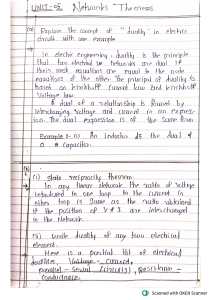 UNIT-05 Networks Theorems
(a) Explain the concept of "duality" in electric
circuit with one example
→ In electric engineering, duality is the principle
that two electrical Networks are dual if
their mesh equations are equal to the node
equations of the other. The principal of duality is
based on kirchhoff current law and kirchhoff
Voltage law.
A dual of a relationship is found by
interchanging voltage and current in an expres-
sion. The dual expression is of the same form
Example :- (1) An Inductor is the dual of
a capacitor.
(i) State reciprocity theorem.
→ In any linear Network the ratio of voltage
introduced in one loop to the current in
other loop is same as the ratio obtained
if the position of V & I are interchanged
in the Network.
(ii) Write duality of any two electrical
element.
→ Here is a partial list of electrical
dualities Voltage - current,
parallel - serial (circuits), resistance -
conductance.
Scanned with OKEN Scanner